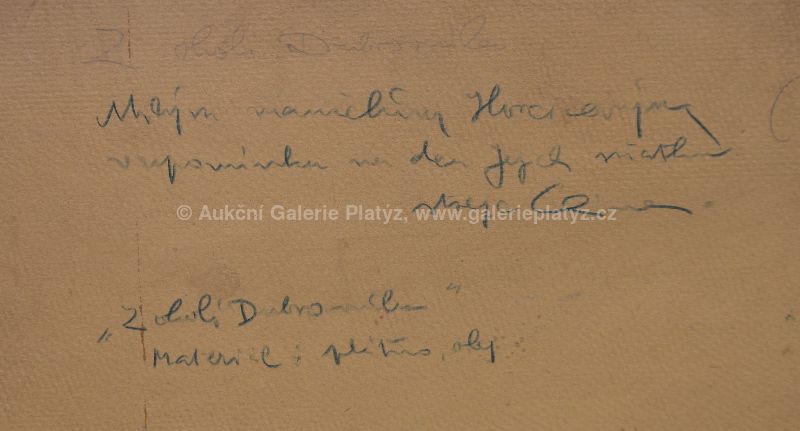 Z okolí Dubrovníku
Milým manželům
vzpomínku na den jejich sňatku
© Aukční Galerie Platýz, www.galerieplatyz.cz
strýc
„Z okolí Dubrovníku“
Materiál: plátno, olej